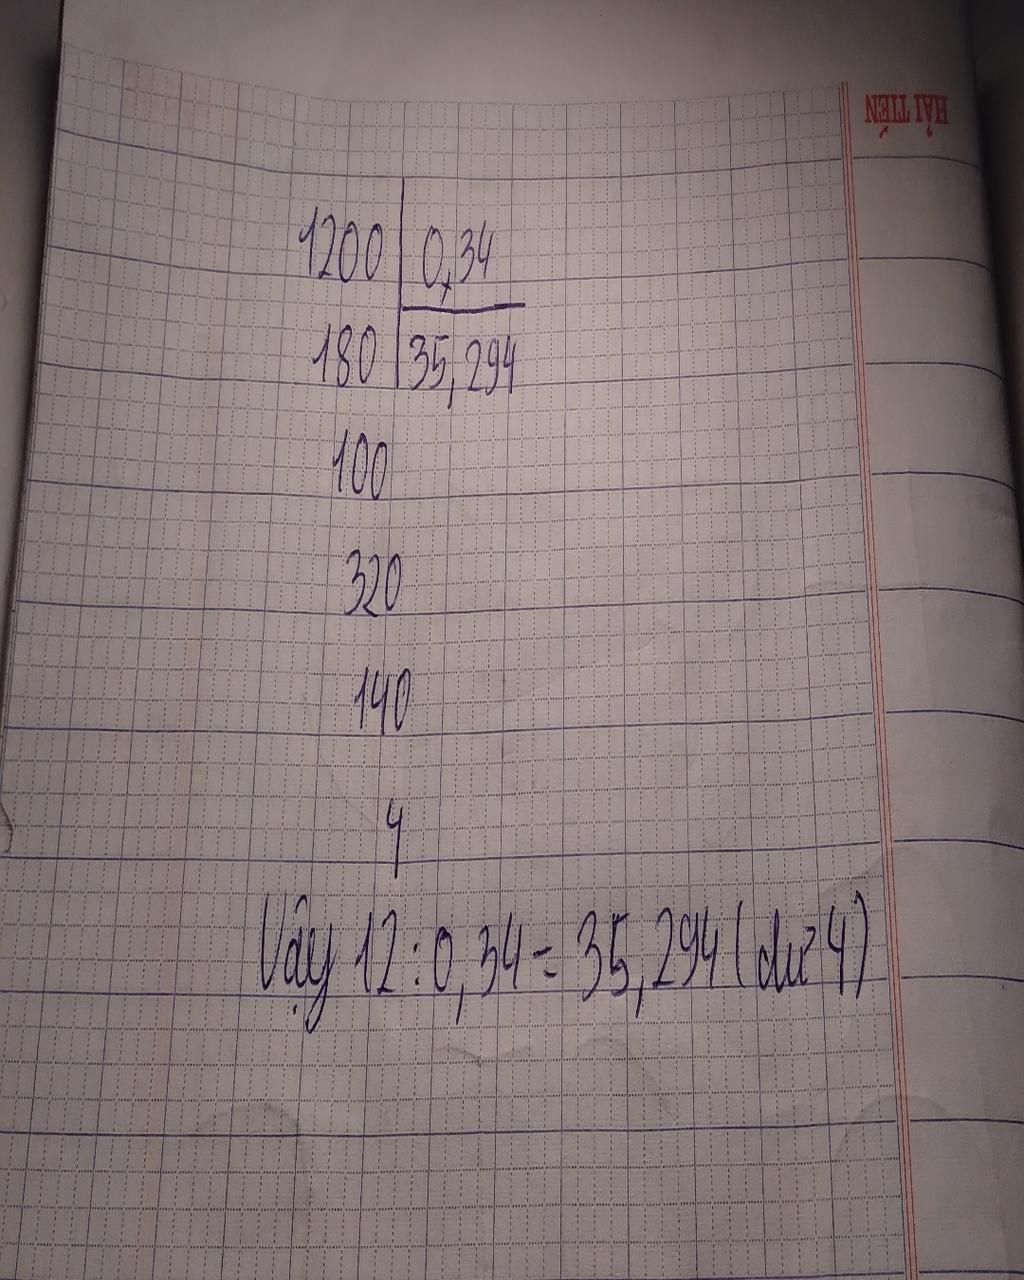 HẢI TIẾN
1200 0,34
180 35,294
100
320
140
4
Vậy 12:0,34= 35,294 (dư 4)